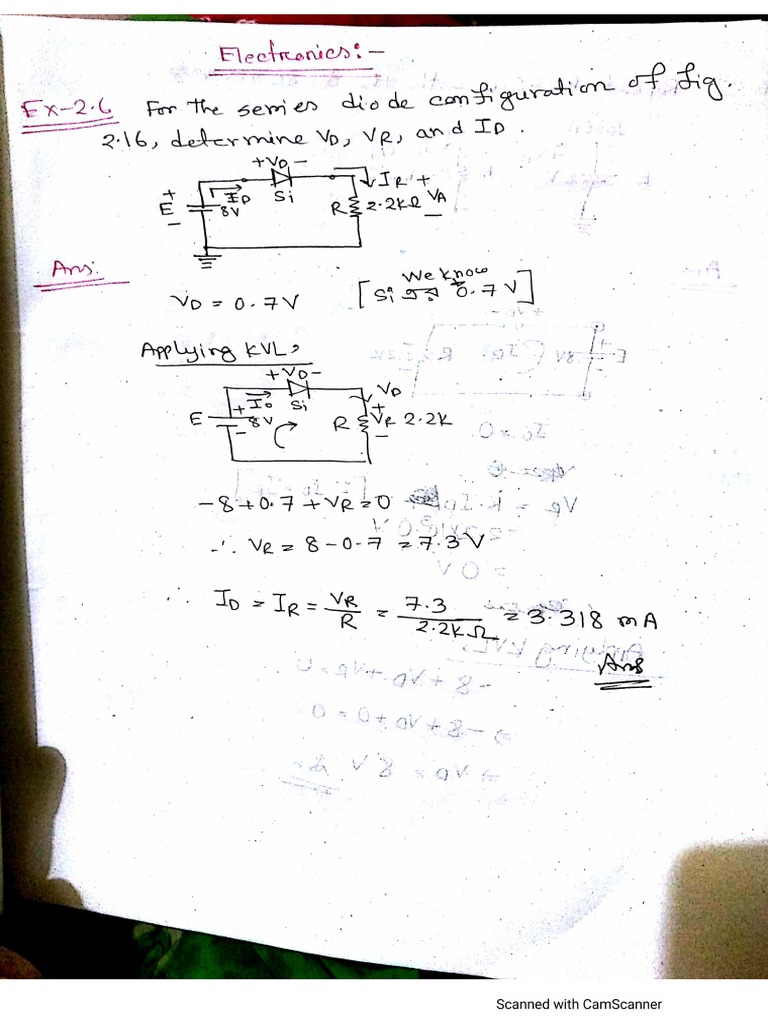 Electronics:-
Ex-2.6 For the series diode configuration of fig.
2.16, determine VD, VR, and ID.
+VD-
+ E - 8V ID Si IR + R 2.2kΩ VA -
Ans:
We know
VD = 0.7V [Si এর 0.7V]
Applying KVL,
+VD-
E + - 8V ID Si R VD + VR - 2.2K
-8+0.7+VR=0
∴ VR = 8-0.7 = 7.3V
∴ ID = IR = VR/R = 7.3/2.2kΩ = 3.318 mA
Ans
Scanned with CamScanner